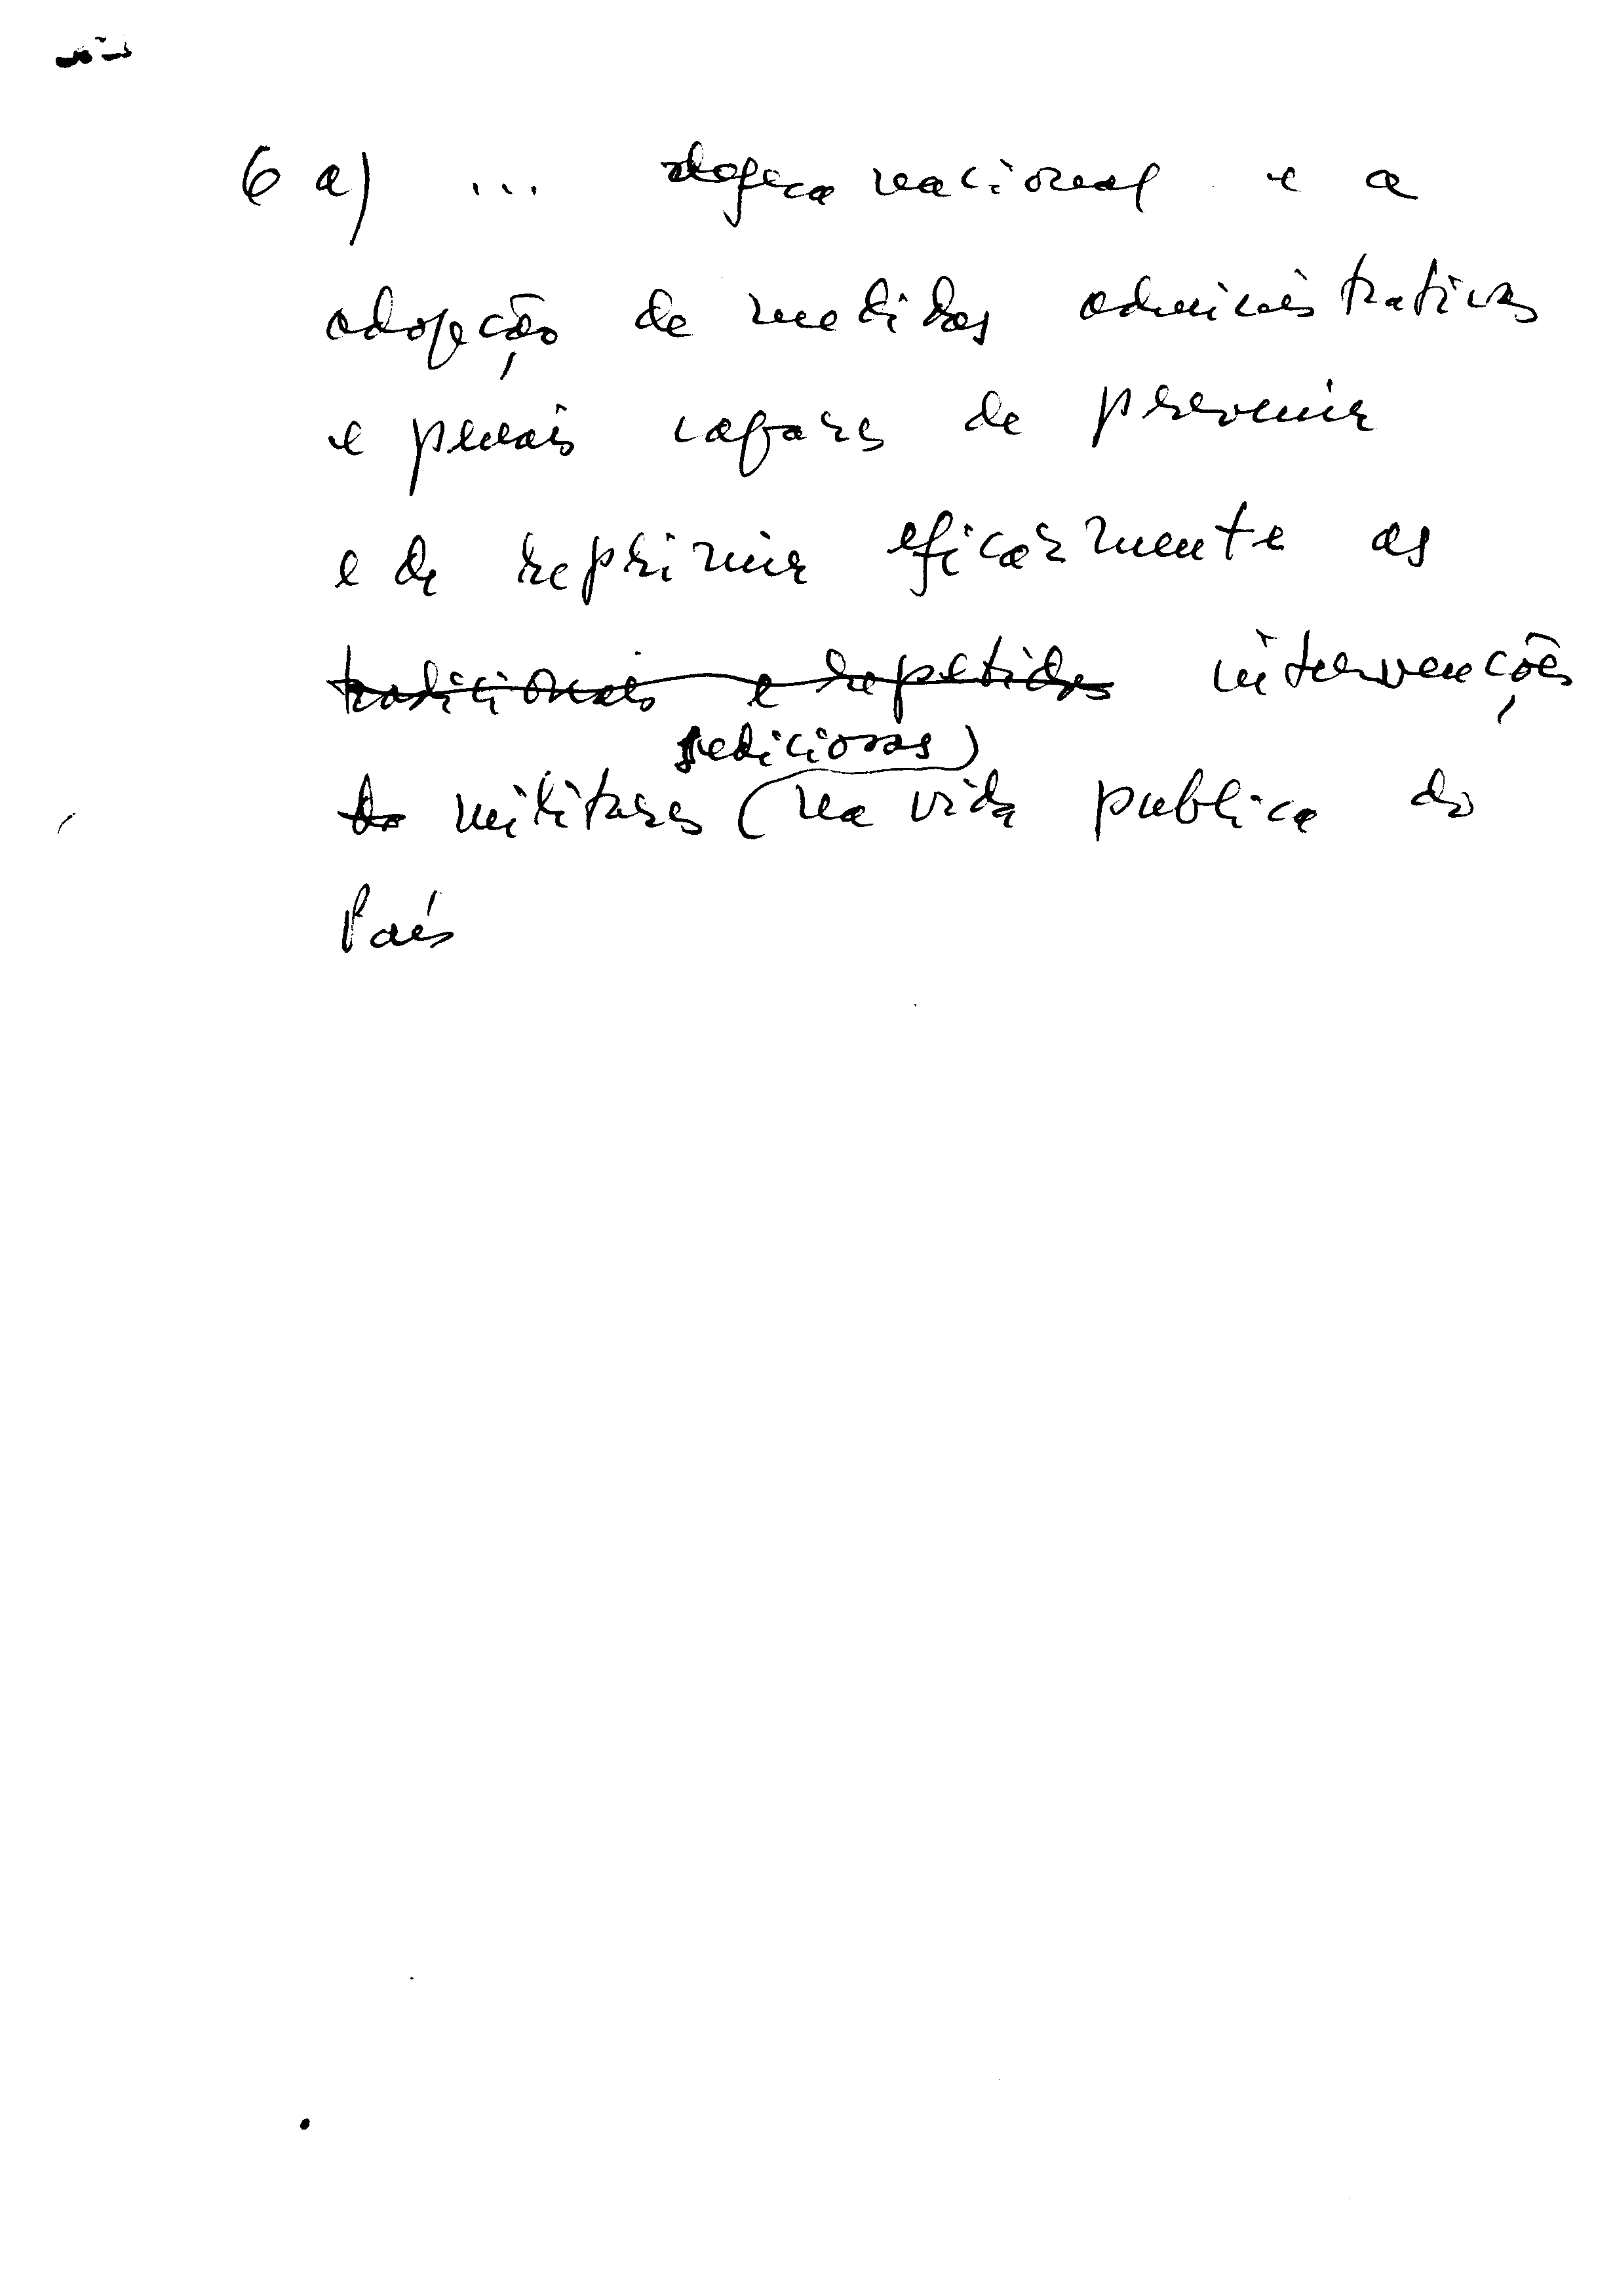 6 a) ... defesa nacional e a
adopção de medidas administrativas
e penais capazes de prevenir
e de reprimir eficazmente as
tradicionais e repetidas intervenções
sediciosas)
do militares (na vida publica do
País